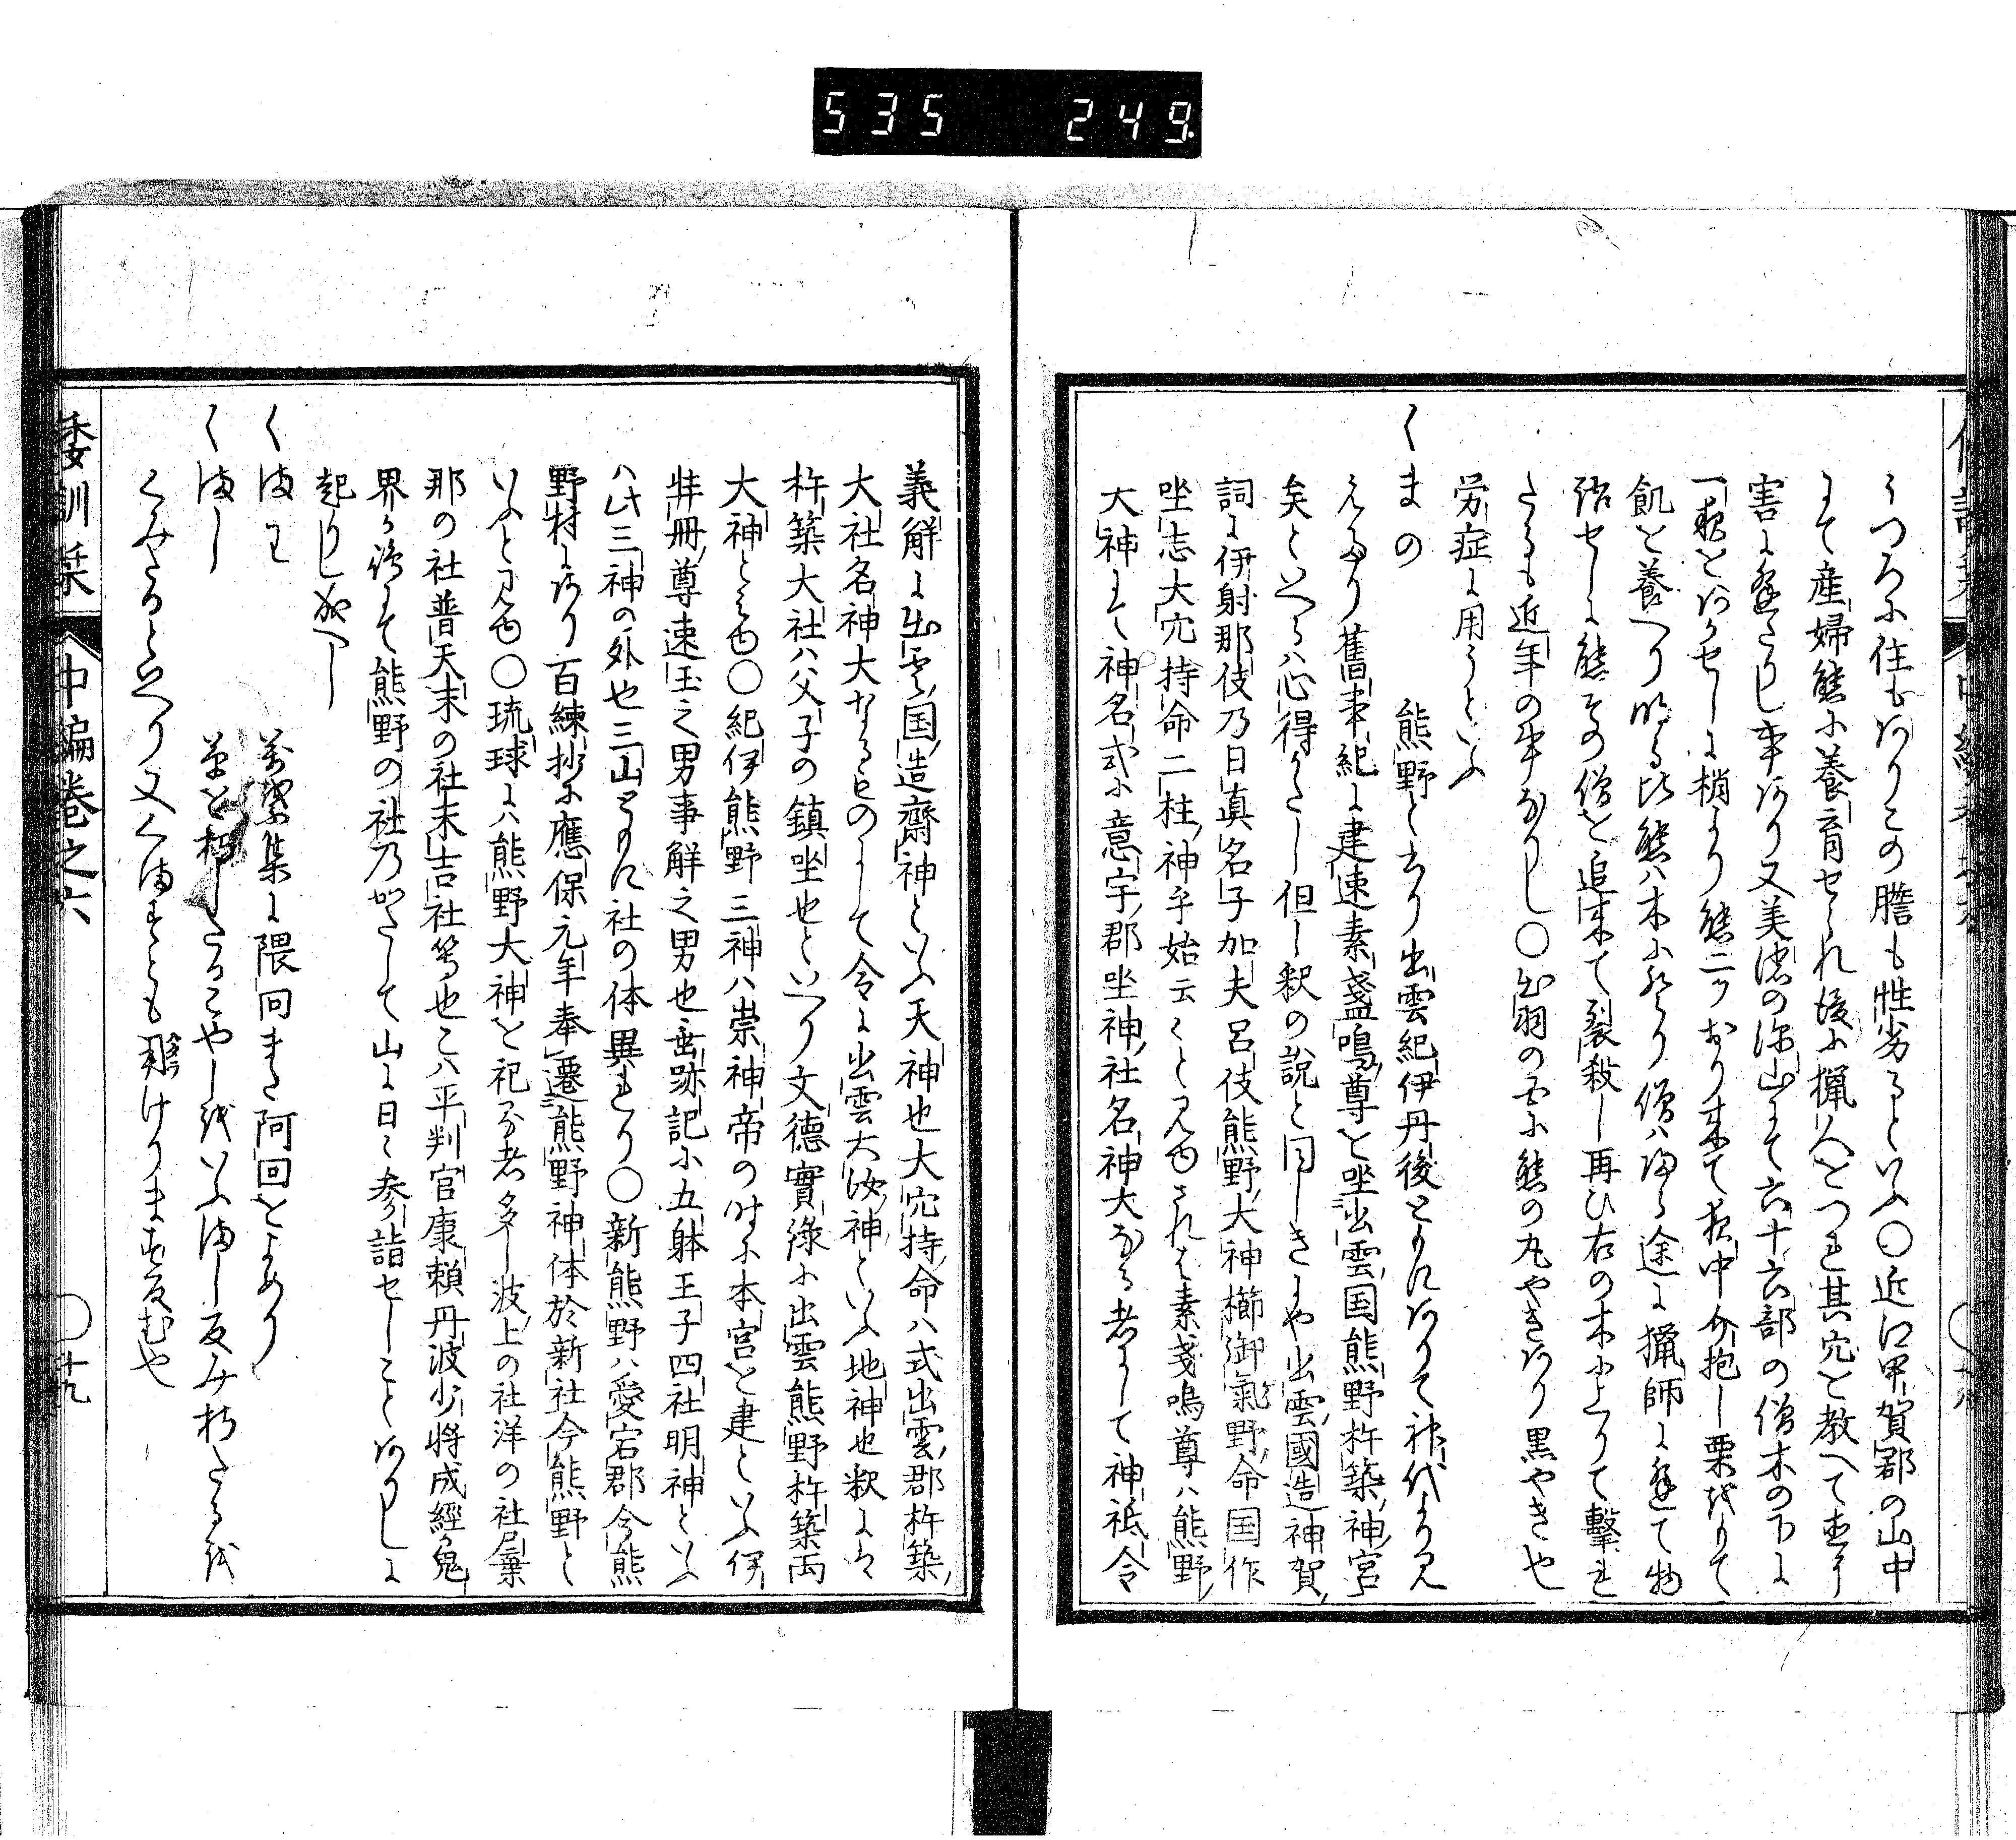 535 249
うつろに住もありこの膽も性劣るといふ〇近江甲賀郡の山中
にて産婦熊に養育せられ後に猟人をつれ其穴を教へて
害に逢たりし事あり又美濃の深山にて六十六部の僧木の下に
一夜をあかせしに梢より熊二ツおり来て夜中介抱し栗をもて
飢を養へり明る比熊ハ木にのほり僧ハ帰る途に猟師に逢て物
語せしに熊その僧を追来て裂殺し再ひ右の木に上りて撃れ
たるも近年の事なりし〇出羽の国に熊の丸やきあり黒やきや
労症に用うといふ
くまの 熊野と書り出雲紀伊丹後ともにありて神代より見
えたり舊事紀に建速素盞嗚尊を坐出雲国熊野杵築神宮
矣といへるハ心得かたし但し釈の説と同しきにや出雲國造神賀
詞に伊射那伎乃日真名子加夫呂伎熊野大神櫛御氣野命国作
坐志大穴持命二柱神乎始云くと見ゆされは素戔嗚尊ハ熊野
大神にて神名式に意宇郡坐神社名神大なる者にして神祇令
義解に出雲国造齋神といふ天神也大穴持命ハ式出雲郡杵築
大社名神大なるものにして令に出雲大汝神といふ地神也釈には
杵築大社ハ父子の鎮坐也といへり文徳實錄に出雲熊野杵築両
大神とみゆ〇紀伊熊野三神ハ崇神帝の時に本宮を建といふ伊
弉冊尊速玉之男事解之男也垂跡記に五躰王子四社明神といふ
ハ此三神の外也三山ともに社の体異れり〇新熊野ハ愛宕郡今熊
野村にあり百練抄に應保元年奉遷熊野神体於新社今熊野と
いふと見ゆ〇琉球にハ熊野大神を祀る者多し波上の社洋の社尸棄
那の社普天末の社末吉社等也こハ平判官康頼丹波少将成經鬼
界か嶋にて熊野の社乃かたして山に日々参詣せしことありしに
起りし成へし
くまわ 萬葉集に隈回また阿回をよめり
くまし 草を朽したるこやしをいふまし反み朽たるを
くみたるといへり又くますとも けります反むや
倭訓栞 中編巻之六 〇十九